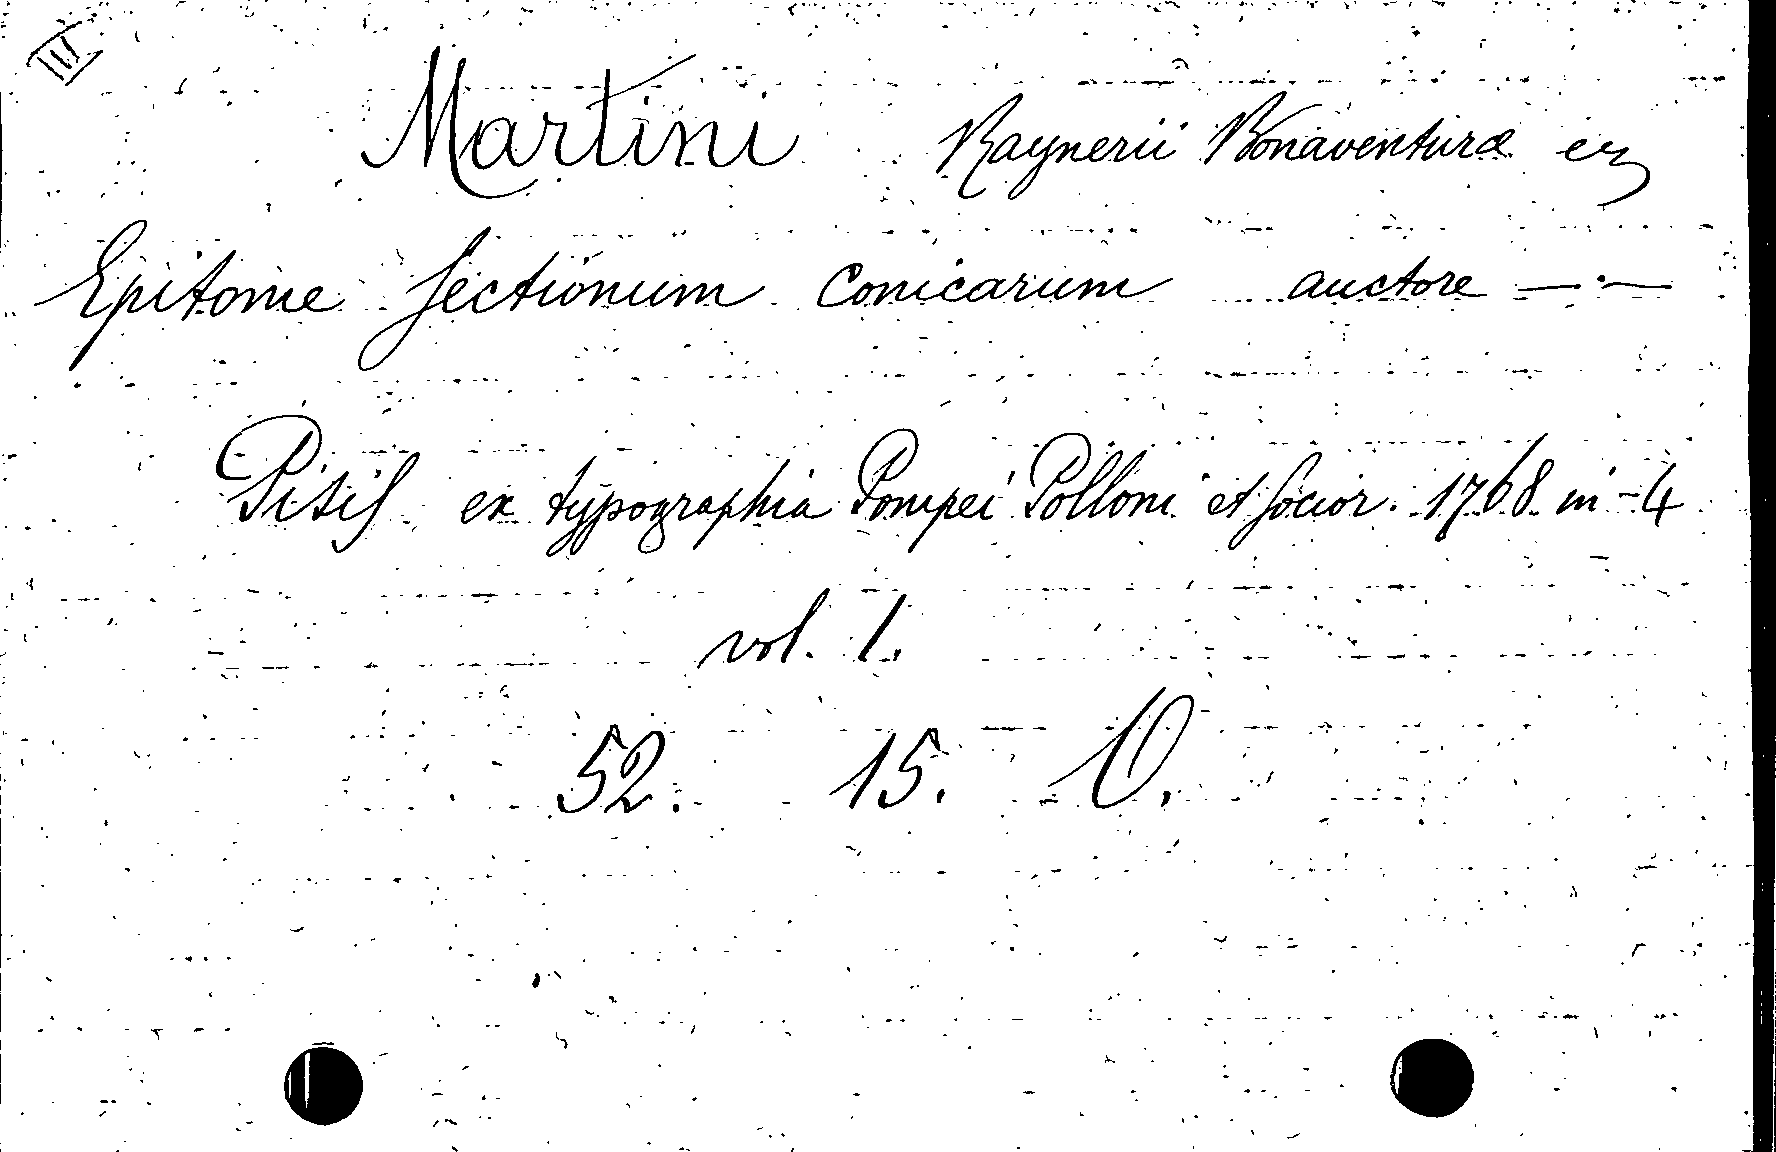 III
Martini Raynerii Bonaventuræ
Epitome Sectionum Conicarum auctore — · —
Pisis ex typographia Pompei Polloni et Socior. 1768 in-4
vol. 1.
52. 15.